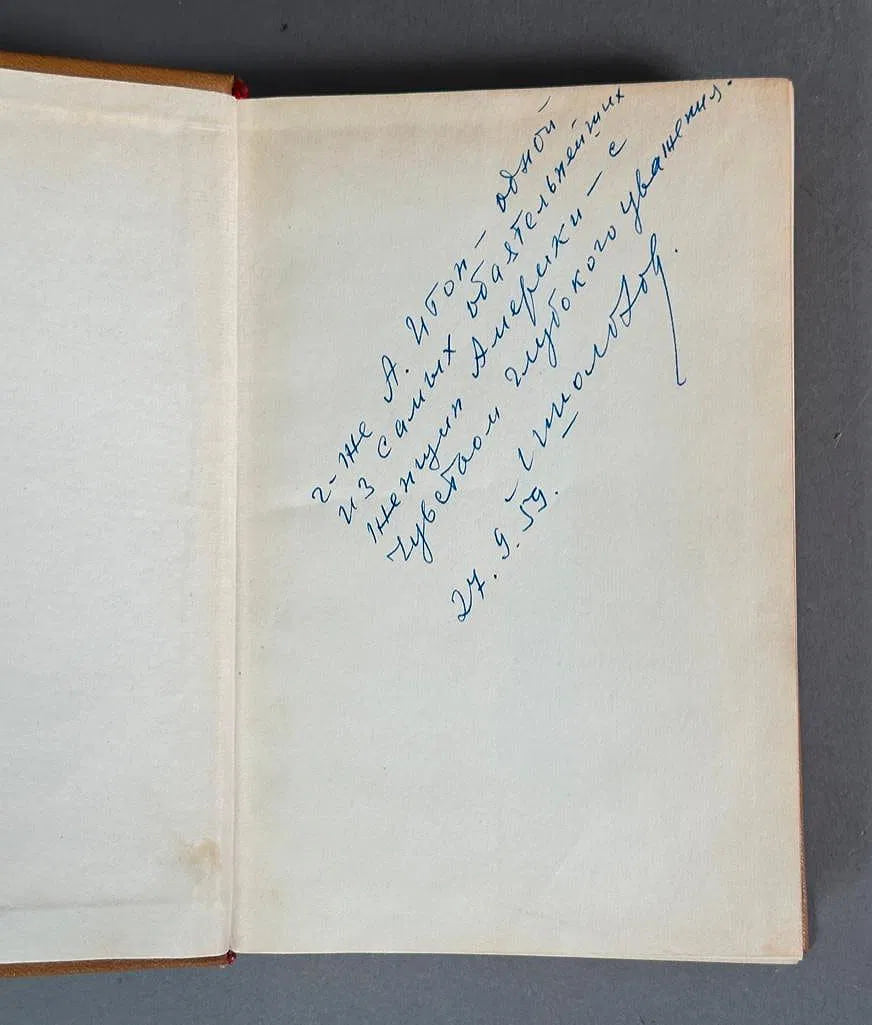 г-же А. Итон – одной
из самых обаятельнейших
женщин Америки – с
чувством глубокого уважения.
М. Шолохов.
27. 9. 59.